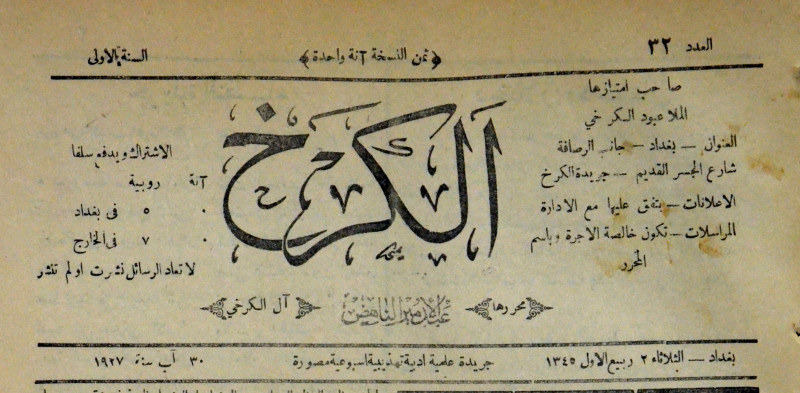 العدد ٣٢
ثمن النسخة آنة واحدة
السنة الاولى
صاحب امتيازها
الملا عبود الكرخي
العنوان – بغداد – جانب الرصافة
شارع الجسر القديم – جريدة الكرخ
الاعلانات – يتفق عليها مع الادارة
المراسلات – تكون خالصة الاجرة وباسم
المحرر
الكرخ
الاشتراك ويدفع سلفا
آنة روبية
٠ ٥ في بغداد
٠ ٧ في الخارج
لا تعاد الرسائل نشرت او لم تنشر
محررها
عبد الامير الناهض
آل الكرخي
بغداد – الثلاثاء ٢ ربيع الاول ١٣٤٥
جريدة علمية ادبية تهذيبية اسبوعية مصورة
٣٠ آب سنة ١٩٢٧